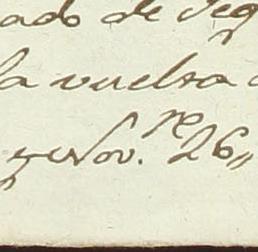 ado de seg
la vuelta
Nov.re 26,,